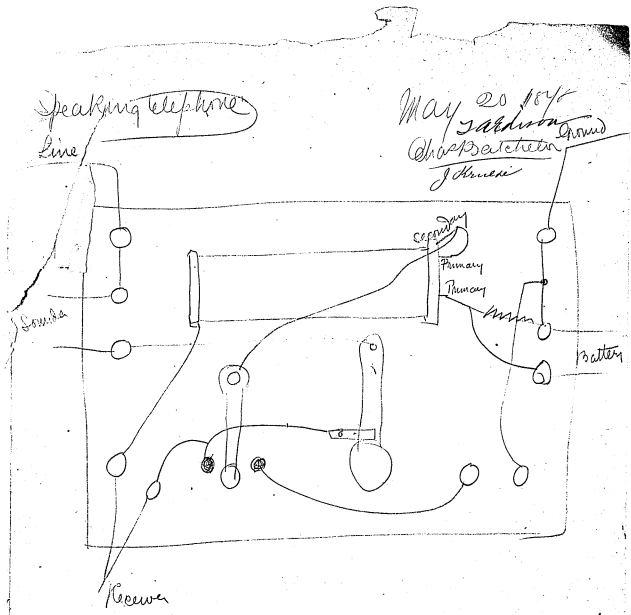 Speaking telephone
May 20 1878
T A Edison
Chas Batchelor
J Kruesi
Line
Ground
Secondary
Primary
Primary
Sounder
Battery
Receiver